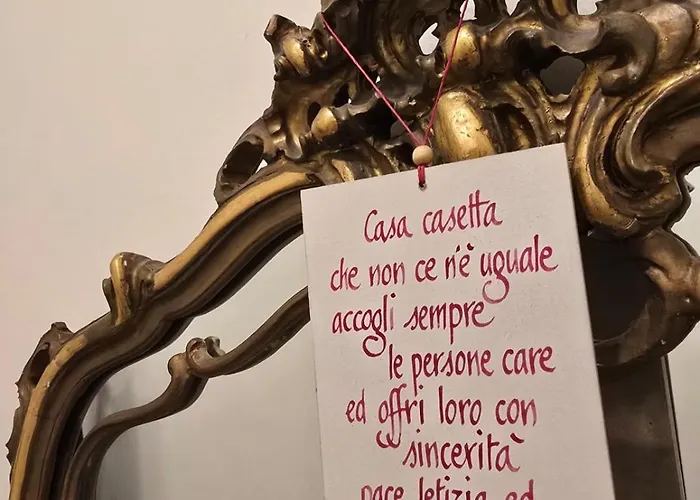 Casa casetta
che non ce n'è uguale
accogli sempre
le persone care
ed offri loro con
sincerità
pace letizia ed